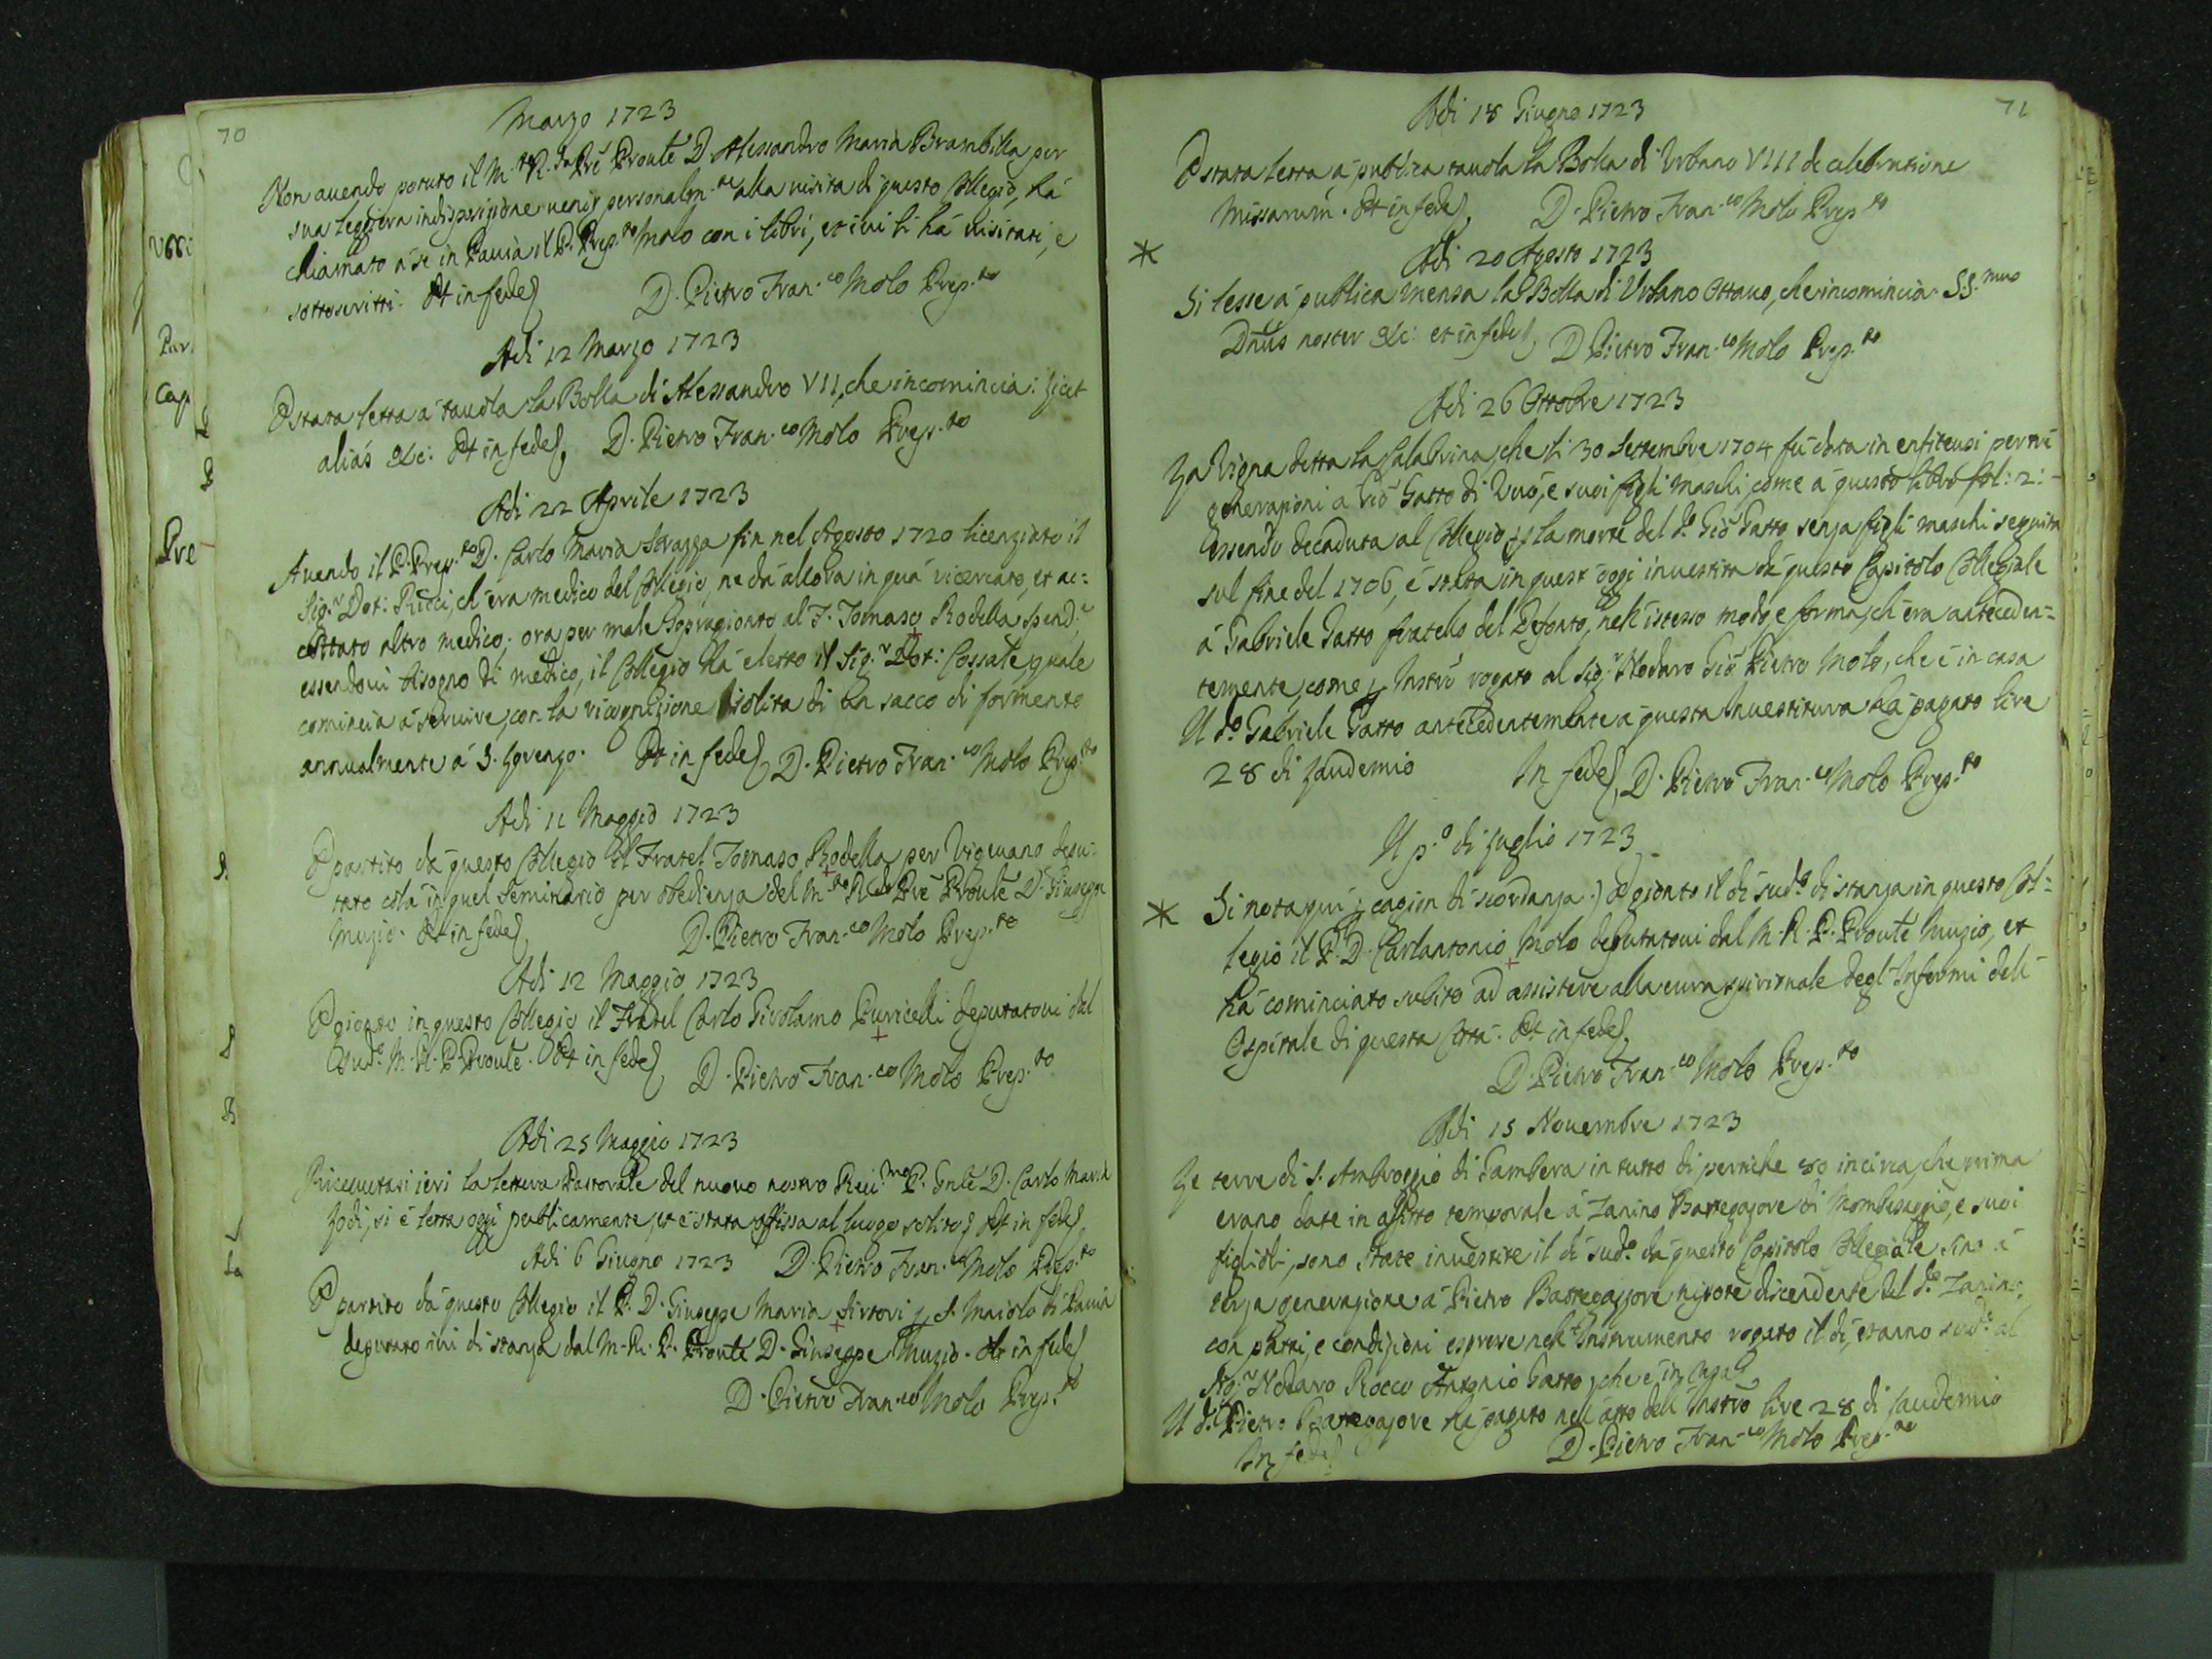 70
Marzo 1723
Non auendo potuto il M.to R.do Pre Proule D. Alessandro Maria Brambilla per
sua leggiera indisposizione uenir personalm.te alla uisita di questo Collegio, ha
chiamato a se in Pauia il P. Prep.to Molo con i libri, et iui li há uisitati, e
sottoscritti. Et in fede
D. Pietro Fran.co Molo Prep.to
Adi 12 Marzo 1723
È stata letta a tauola la Bolla di Alessandro VII, che incomincia: Licet
aliás &c: Et in fede, D. Pietro Fran.co Molo Prep.to
Adi 22 Aprile 1723
Auendo il P. Prep.to D. Carlo Maria fin nel Agosto 1720 licenziato il
Sig.r Dot: Ricci, ch'era medico del Collegio, ne da allora in quá ricercato, et ac=
cettato altro medico; ora per male sopragionto al F. Tomaso Rodella
essendoui bisogno di medico, il Collegio há eletto il Sig.r Dot: Cossale, quale
comincia á seruire, con la ricognizione solita di un sacco di formento
annualmente á S. Lorenzo. Et in fede D. Pietro Fran.co Molo Prep.to
Adi 11 Maggio 1723
È partito da questo Collegio il Fratel Tomaso Rodella per Vigeuano depu=
tato colá in quel Seminario per obedienza del M.to R.do Pre Proule D. Giuseppe
Muzio. Et in fede
D. Pietro Fran.co Molo Prep.to
Adi 12 Maggio 1723
È gionto in questo Collegio il Fratel Carlo Girolamo Puricelli deputatoui dal
sud.o M. R. P. Proule. Et in fede D. Pietro Fran.co Molo Prep.to
Adi 25 Maggio 1723
Riceuutasi ieri la lettera Pastorale del nuouo nostro Reu.mo P. Gnle D. Carlo Maria
Lodi, si é letta oggi publicamente, et é stata affissa al luogo solito. Et in fede
Adi 6 Giugno 1723 D. Pietro Fran.co Molo Prep.to
È partito da questo Collegio il P. D. Giuseppe Maria Sirtori p S. Maiolo di Pauia
deputato iui di stanza dal M. R. P. Proule D. Giuseppe Muzio. Et in fede
D. Pietro Fran.co Molo Prep.to
71
Adi 18 Giugno 1723
È stata letta á publica tauola la Bolla di Urbano VIII de celebratione
Missarum. Et in fede, D. Pietro Fran.co Molo Prep.to
Adi 20 Agosto 1723
* Si lesse á publica mensa la Bolla di Urbano Ottauo, che incomincia: SS.mus
Dnus noster &c: et in fede, D. Pietro Fran.co Molo Prep.to
Adi 26 Ottobre 1723
La Vigna detta la Calabrina, che li 30 Settembre 1704 fú data in enfiteusi per tré
generazioni a Gió Gatto di e suoi figli maschi, come á questo libro fol: 2:
essendo decaduta al Collegio p la morte del d.o Gió Gatto senza figli maschi seguita
sul fine del 1706, é stata in quest'oggi inuestita dá questo Capitolo Collegiale
á Gabriele Gatto fratello del Defonto, nell'istesso modo, e forma, ch'era anteceden=
temente, come p Instro rogato al Sig.r Nodaro Gió Pietro Molo, che é in casa
Il d.o Gabriele Gatto antecedentemente á questa Inuestitura há pagato lire
28 di Laudemio In fede, D. Pietro Fran.co Molo Prep.to
Il p.o di Luglio 1723
* Si nota qui p cagion di scordanza.) È gionto il dí sud.o di stanza in questo Col=
legio il P. D. Carlantonio Molo deputatoui dal M. R. P. Proule Muzio, et
há cominciato subito ad assistere alla cura spirituale degl'Infermi dell'
Ospitale di questa Cittá. Et in fede,
D. Pietro Fran.co Molo Prep.to
Adi 15 Nouembre 1723
Le terre di S. Ambroggio di Gambera in tutto di pertiche 80 incirca, che prima
erano date in affitto temporale á Zanino Battegazore di Mombisaggio, e suoi
figlioli, sono state inuestite il dí sud.o da questo Capitolo Collegiale sino á
terza generazione á Pietro Battegazzore nipote discendente del d.o Zanino,
con patti, e condizioni espresse nell'Instrumento rogato il dí, et anno sud.o al
Sig.r Nodaro Rocco Antonio Gatto, che é in Casa
Il d.o Pietro Battegazore há pagato nell'atto dell'Instro lire 28 di Laudemio
In fede D. Pietro Fran.co Molo Prep.to